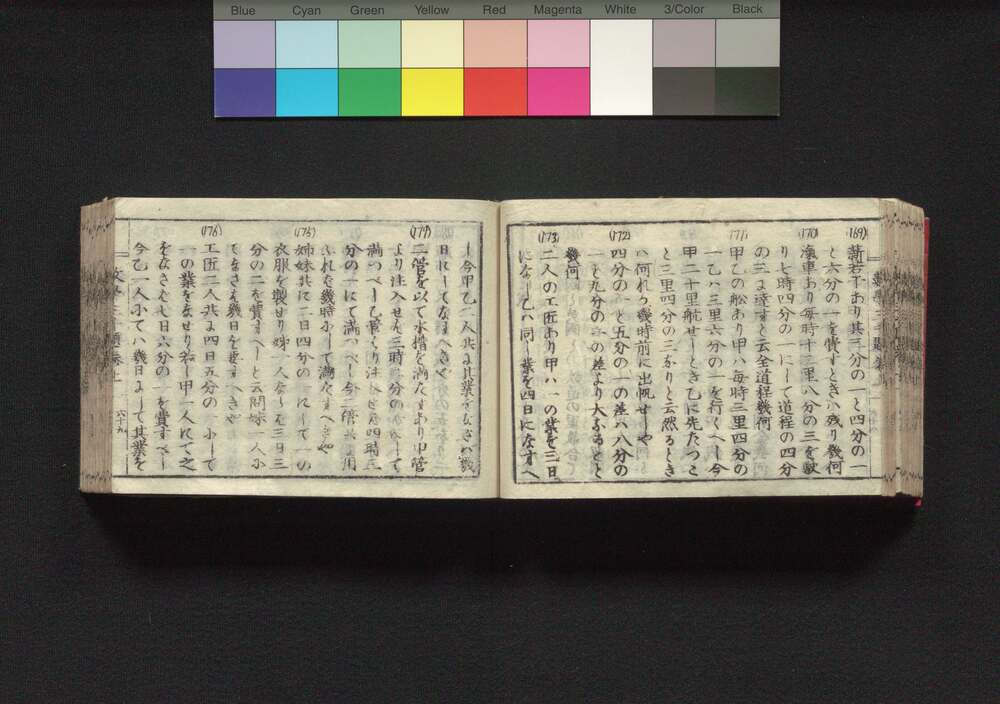 Blue Cyan Green Yellow Red Magenta White 3/Color Black
(169)
薪若干あり其三分の一と四分の一
と六分の一を費すときハ残り幾何
(170)
滊車あり毎時十三里八分の三を駛
り七時四分の一にして道程の四分
の三に達すと云全道程幾何
(171)
甲乙の舩あり甲ハ毎時三里四分の
一乙ハ三里六分の一を行くへし今
甲二十里航せしとき乙に先たつこ
と三里四分の三なりと云然るとき
ハ何れか幾時前に出帆せしや
(172)
四分の一と五分の一の差ハ八分の
一と九分の一の差より大なること
幾何
(173)
二人の工匠あり甲ハ一の業を三日
になし乙ハ同し業を四日になすへ
し今甲乙二人共に其業をなさハ幾
日にしてなすへきや
(174)
二管を以て水槽を満たすあり甲管
より注入せハ三時 分の にして
満つへし乙管より注入せハ四時三
分の一にて満つへし今二管共に用
ふれハ幾時にして満たすへきや
(175)
姉妹共に二日四分の にして一の
衣服を製せり姉一人ならハ三日三
分の二を費すへしと云問妹一人に
てなさハ幾日を要すへきや
(176)
工匠二人共に四日五分の一にして
一の業をなせり若し甲一人にて之
をなさハ七日六分の一を費すへし
今乙一人にてハ幾日にして其業を
六十九